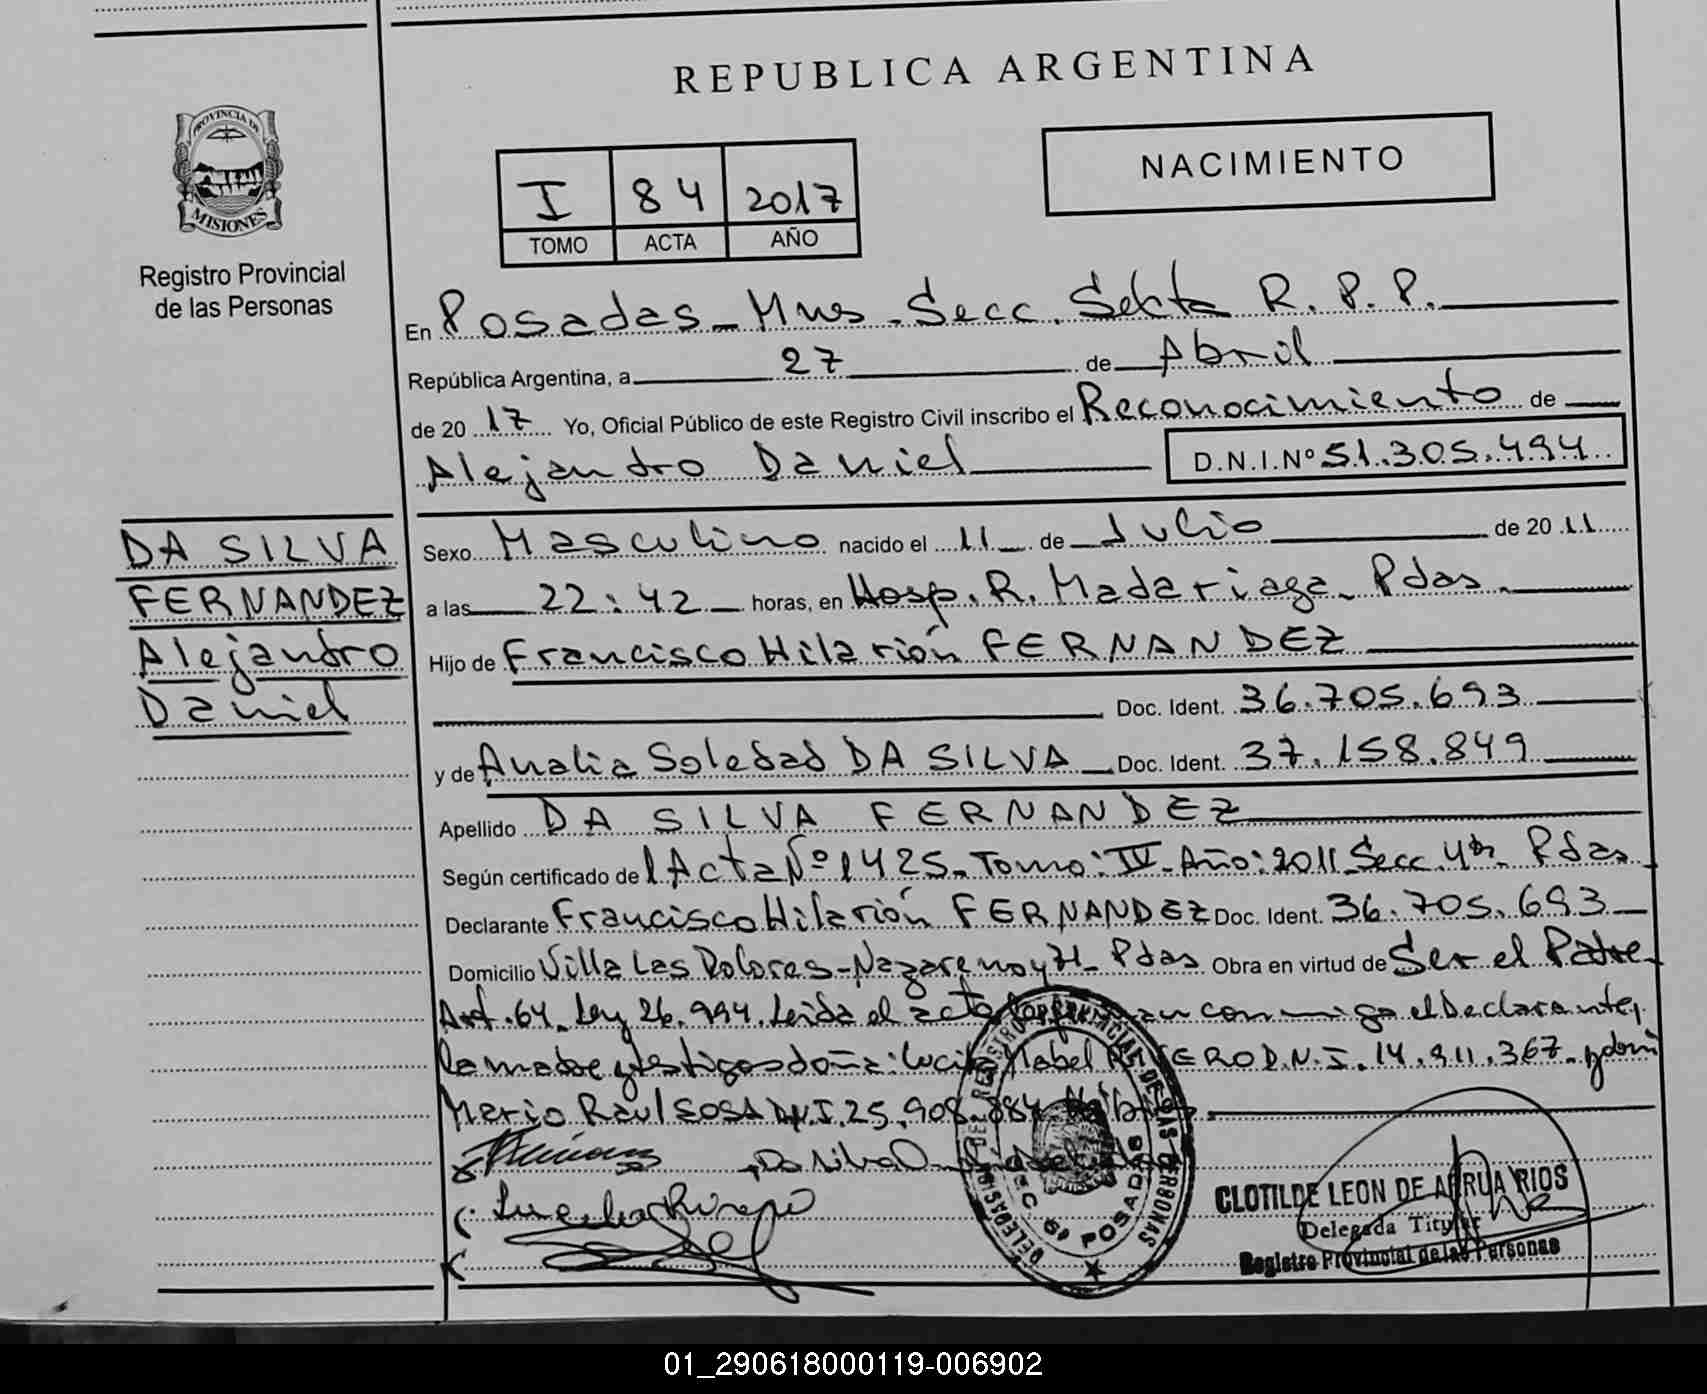 REPUBLICA ARGENTINA
PROVINCIA DE
MISIONES
Registro Provincial
de las Personas
NACIMIENTO
I 84 2017
TOMO ACTA AÑO
En Posadas - Mnes - Secc. Sekta R. P. P.
República Argentina, a 27 de Abril
de 20 17 Yo, Oficial Público de este Registro Civil inscribo el Reconocimiento de
Alejandro Daniel D.N.I.Nº 51.305.494
DA SILVA
FERNANDEZ
Alejandro
Daniel
Sexo Masculino nacido el 11 de Julio de 20 11
a las 22:42 horas, en Hosp. R. Madariaga - Pdas
Hijo de Francisco Hilarión FERNANDEZ
Doc. Ident. 36.705.693
y de Analia Soledad DA SILVA Doc. Ident. 37.158.849
Apellido DA SILVA FERNANDEZ
Según certificado de l Acta Nº 1425 - Tomo: IV - Año: 2011 Secc. 4ta - Pdas
Declarante Francisco Hilarión FERNANDEZ Doc. Ident. 36.705.693
Domicilio Villa Las Dolores - Nazareno y H - Pdas Obra en virtud de Ser el Padre
Art. 64 - Ley 26.994. Leida el acta conmigo el Declarante,
la madre y testigos doña: Lucila Mabel D.N.I. 14.911.367 - y don
Mario Raul SOSA D.N.I. 25.908.884
DELEGACION DEL REGISTRO PROVINCIAL DE LAS PERSONAS
SEC 6ª POSADAS
CLOTILDE LEON DE ARRUA RIOS
Delegada Titular
Registro Provincial de las Personas
01_290618000119-006902